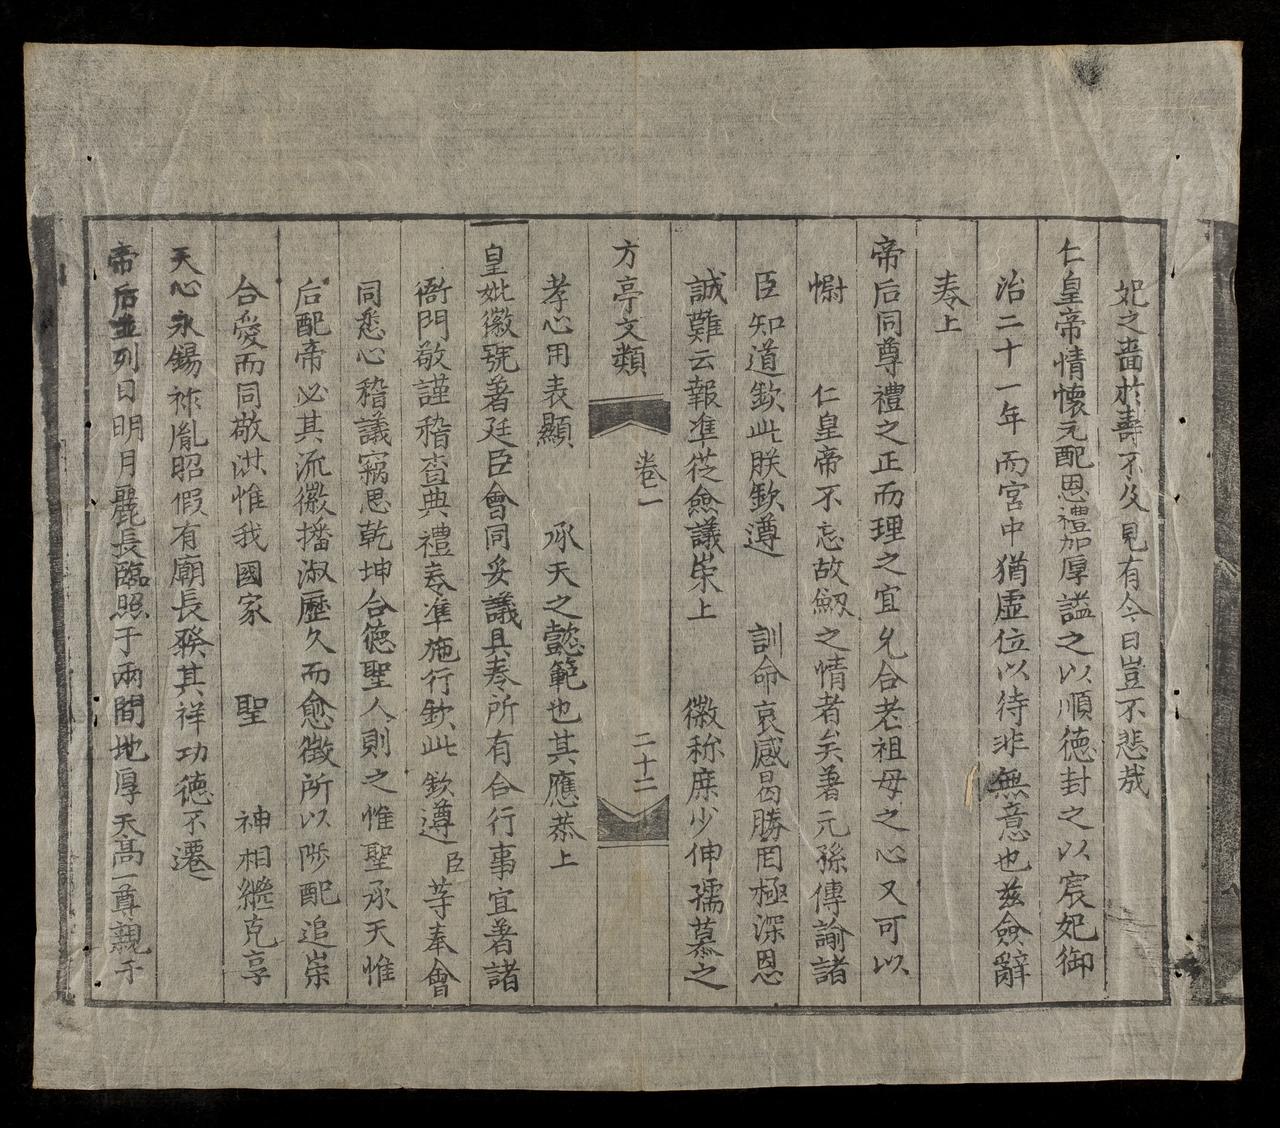 妃之嗇於壽不及見有今日豈不悲哉
仁皇帝情懷元配恩禮加厚謚之以順德封之以宸妃御
治二十一年而宮中猶虛位以待非無意也茲僉辭
奏上
帝后同尊禮之正而理之宜允合老祖母之心又可以
慰 仁皇帝不忘故劔之情者矣著元孫傳諭諸
臣知道欽此朕欽遵 訓命哀感曷勝罔極深恩
誠難云報準從僉議崇上 徽称庶少伸孺慕之
方亭文類 卷一 二十二
孝心用表顯 承天之懿範也其應恭上
皇妣徽號著廷臣會同妥議具奏所有合行事宜著諸
衙門敬謹稽查典禮奏准施行欽此欽遵臣等奉會
同悉心稽議竊思乾坤合德聖人則之惟聖承天惟
后配帝必其流徽播淑歷久而愈徵所以陟配追崇
合愛而同敬洪惟我國家 聖 神相繼克享
天心永錫祚胤昭假有廟長發其祥功德不遷
帝后並列日明月麗長臨照于兩間地厚天高一尊親于